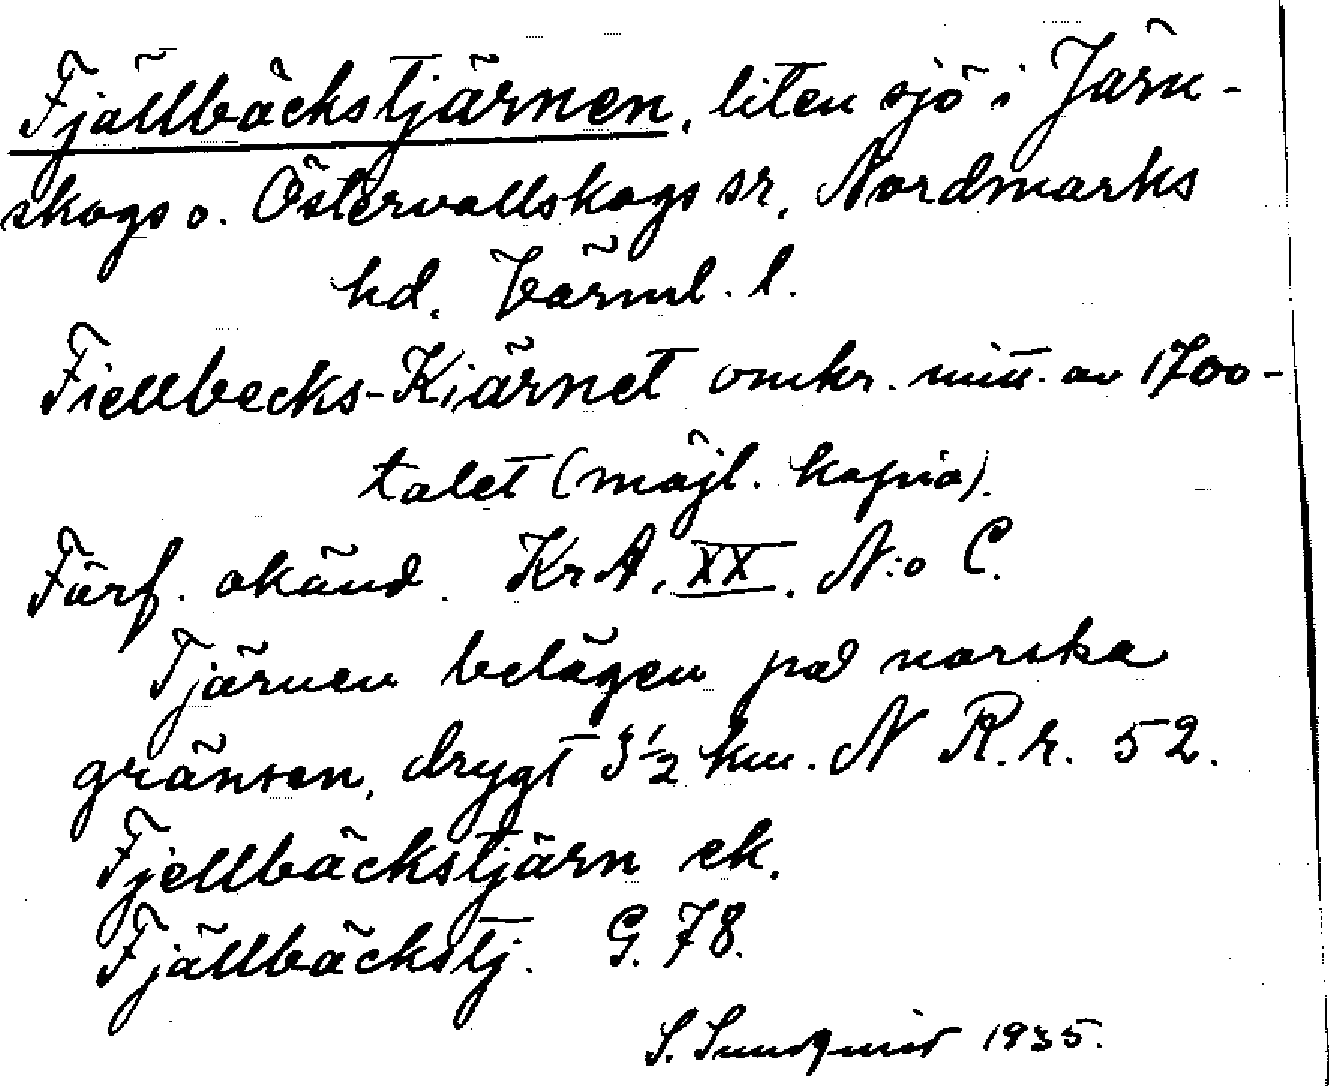 Fjällbäckstjärnen, liten sjö i Järn-
skogs o. Östervallskogs sr, Nordmarks
hd. Värml. l.
Fiellbecks-Kiärnet omkr. mitt. av 1700-
talet (möjl. kopia).
Förf. okänd. KrA, XX. N:o C.
Tjärnen belägen på norska
gränsen, drygt 3 1/2 km. N R.r. 52.
Fjellbäckstjärn ek.
Fjällbäckstj. G. 78.
S. Sundqvist 1935.